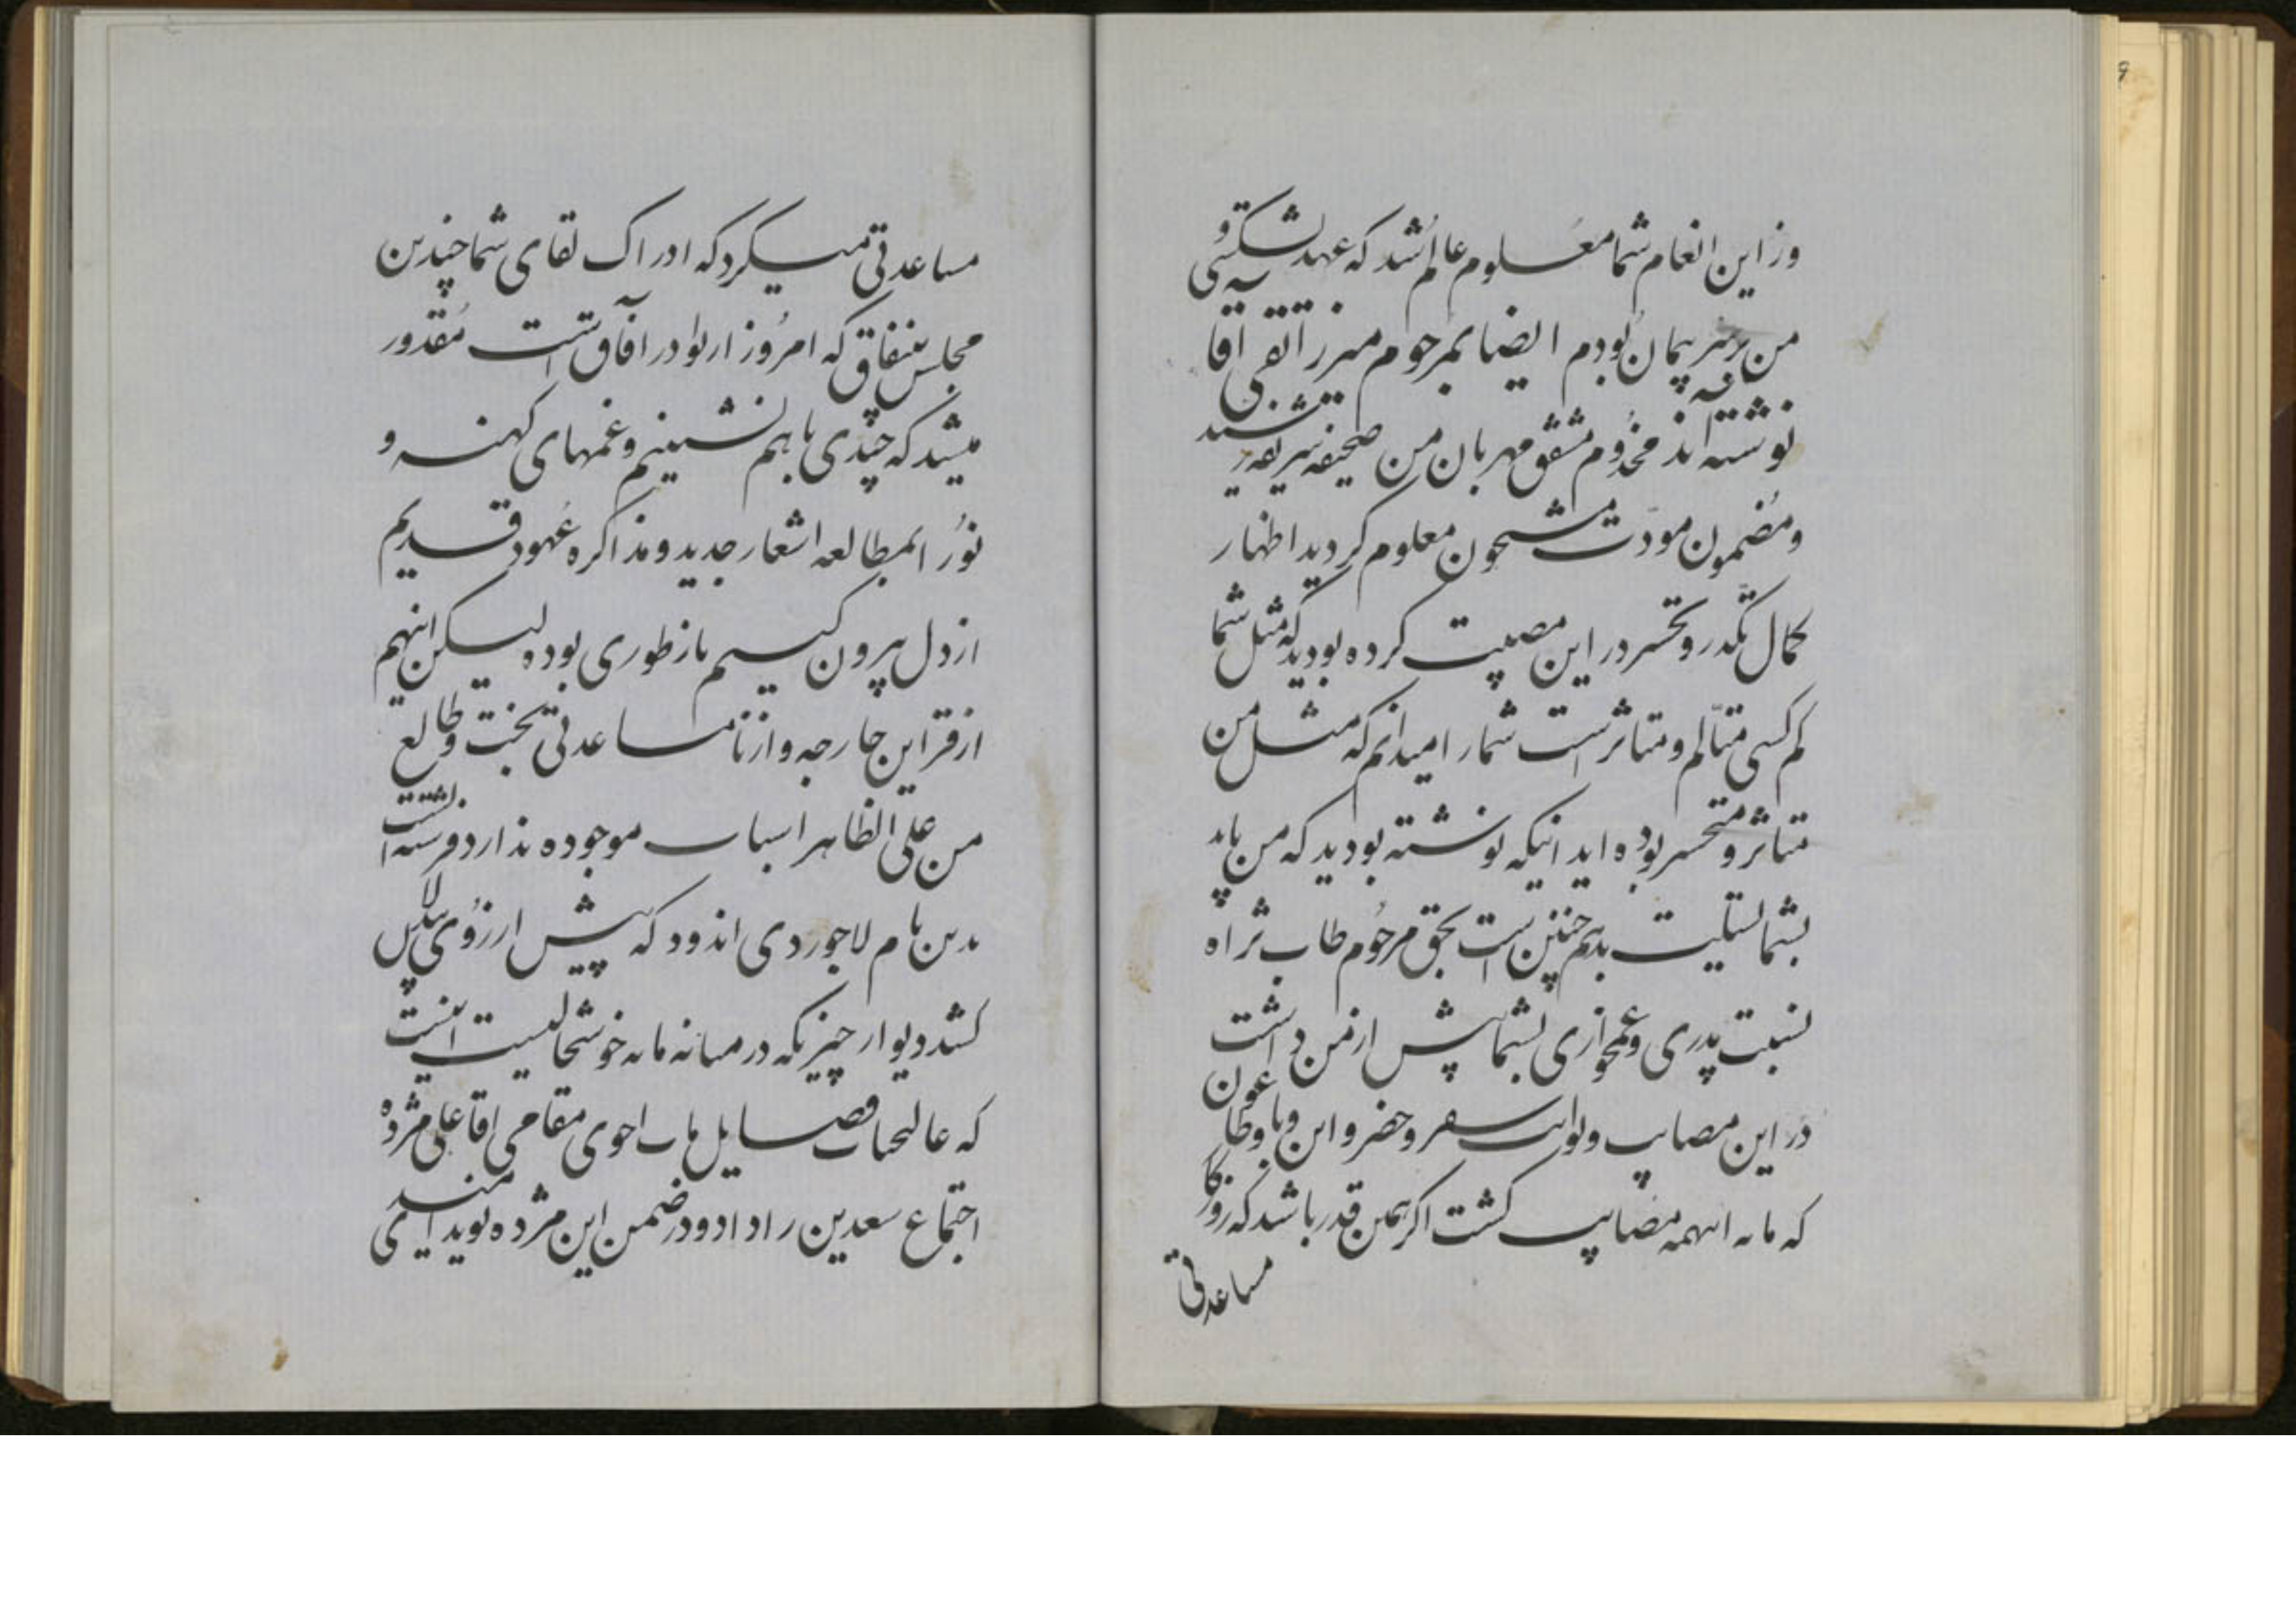 وز این انعام شما معلوم عالم شد که عهد بشکستی و
من بر سر پیمان بودم ایضا بمرحوم میرزا تقی آقا
نوشته‌اند مخدوم مشفق مهربان من صحیفه شریفه رسید
و مضمون مودت مشحون معلوم گردید اظهار
کمال تکدر و تحسر در این مصیبت کرده بودید که مثل شما
کم کسی متألم و متاثر است شما را میدانم که مثل من
متاثر و متحسر بوده اید اینکه نوشته بودید که من باید
بشما تسلیت بدهم چنین است بحق مرحوم طاب ثراه
نسبت پدری و غمخواری بشما پیش از من داشت
در این مصایب و نوایب سفر و حضر و این وبا و طاعون
که ما به اینهمه مصایب گشت اگر همین قدر باشد که روزگار
مساعدتی
مساعدتی میکرد که ادراک لقای شما چندین
مجلس بنفاق که امروز از نوادر آفاق است مقدور
میشد که چندی با هم نشینیم و غمهای کهنه و
نو را بمطالعه اشعار جدید و مذاکره عهود قدیم
از دل بیرون کنیم باز طوری بود لیکن اینهم
از قراین خارجه و از نامساعدتی بخت و طالع
من علی الظاهر اسباب موجوده ندارد فرسته است
بدین بام لاجوردی اندود که پیش آرزوی بیدلان
کشد دیوار چیزیکه در میانه مایه خوشحالیست اینست
که عالیجاه فضایل مآب اخوی مقامی آقا علی مژده
اجتماع سعدین را داد و در ضمن این مژده نوید